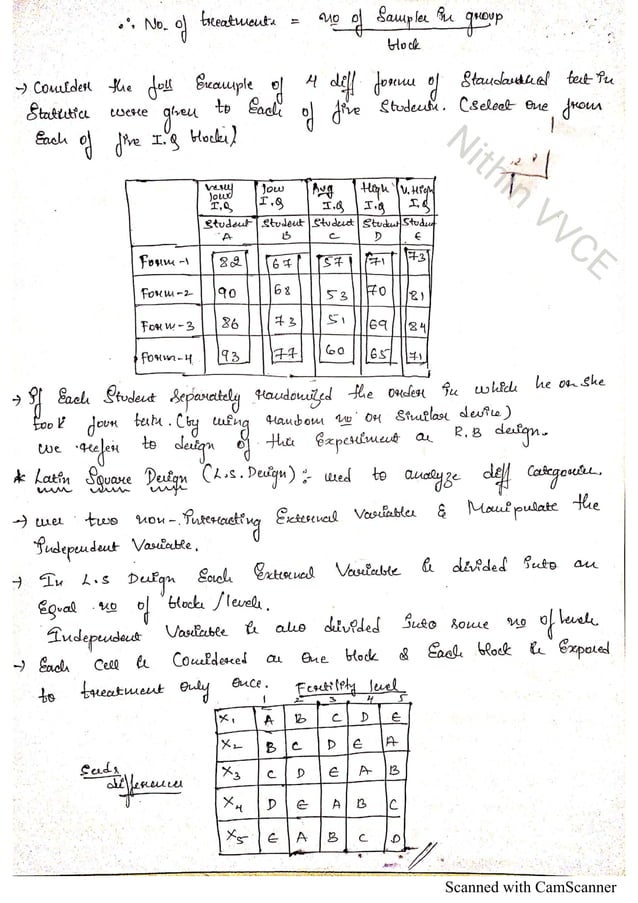 ∴ No. of treatments = no of Samples in group
block
→ Consider the foll Example of 4 diff forms of Standardized test in
Statistics were given to Each of five Students. (select one from
Each of five I.Q blocks)
Very low I.Q | low I.Q | Avg I.Q | High I.Q | V. High I.Q
Student A | Student B | Student C | Student D | Student E
Form-1 | 82 | 67 | 57 | 71 | 73
Form-2 | 90 | 68 | 53 | 70 | 81
Form-3 | 86 | 73 | 51 | 69 | 84
Form-4 | 93 | 77 | 60 | 65 | 71
→ If Each Student Separately randomized the order in which he or she
took four tests. (by using random no or Similar device)
we refer to design of this Experiment as R.B design.
* Latin Square Design (L.S. Design) :- used to analyze diff Categories.
→ uses two non-Interacting External Variables & Manipulate the
Independent Variable.
→ In L.S Design Each External Variable is divided into an
Equal no of blocks / levels.
Independent Variable is also divided into same no of levels
→ Each Cell is Considered as One block & Each block is Exposed
to treatment only once.
Fertility level
1 2 3 4 5
X1 | A | B | C | D | E
X2 | B | C | D | E | A
X3 | C | D | E | A | B
Seeds
difference
X4 | D | E | A | B | C
X5 | E | A | B | C | D
Nithin VVCE
Scanned with CamScanner